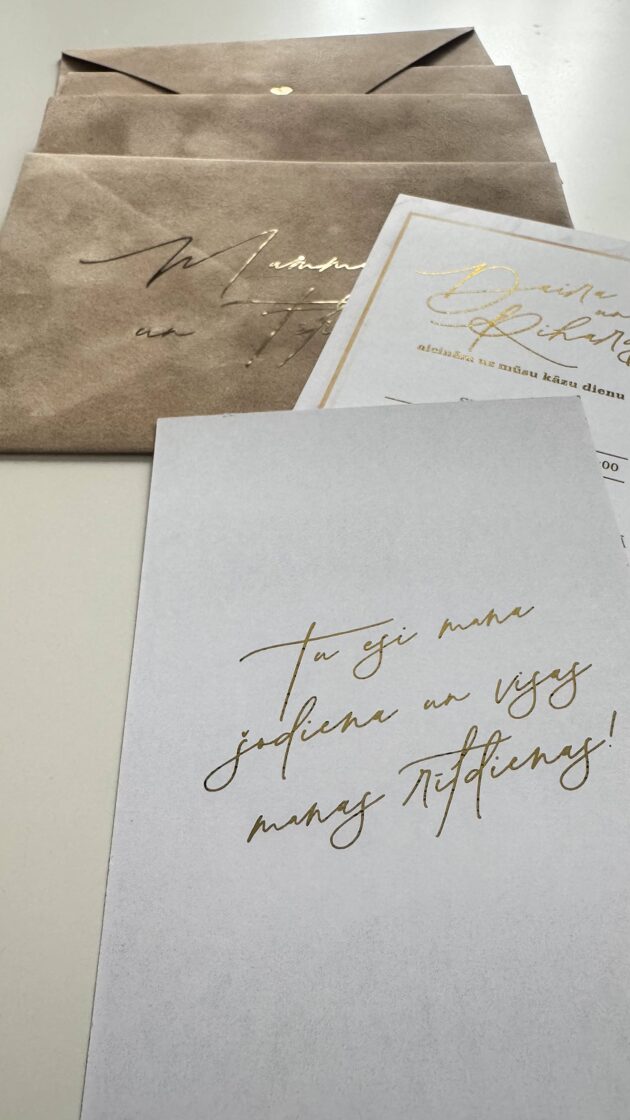 un
Daina
un
aicinām uz mūsu kāzu dienu
:00
Tu esi mana
šodiena un visas
manas rītdienas!